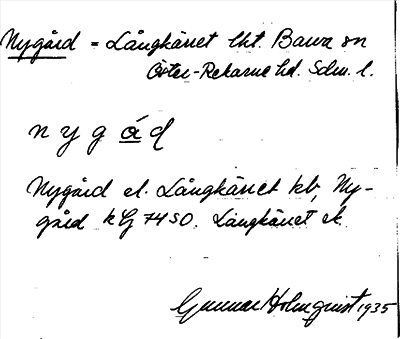 Nygård = Långkärret lht. Barva sn
Öster-Rekarne hd. Sdm. l.
n y g å d
Nygård el. Långkärret kb, Ny-
gård k G 74 SO. Långkärret ek
Gunnar Holmquist 1935